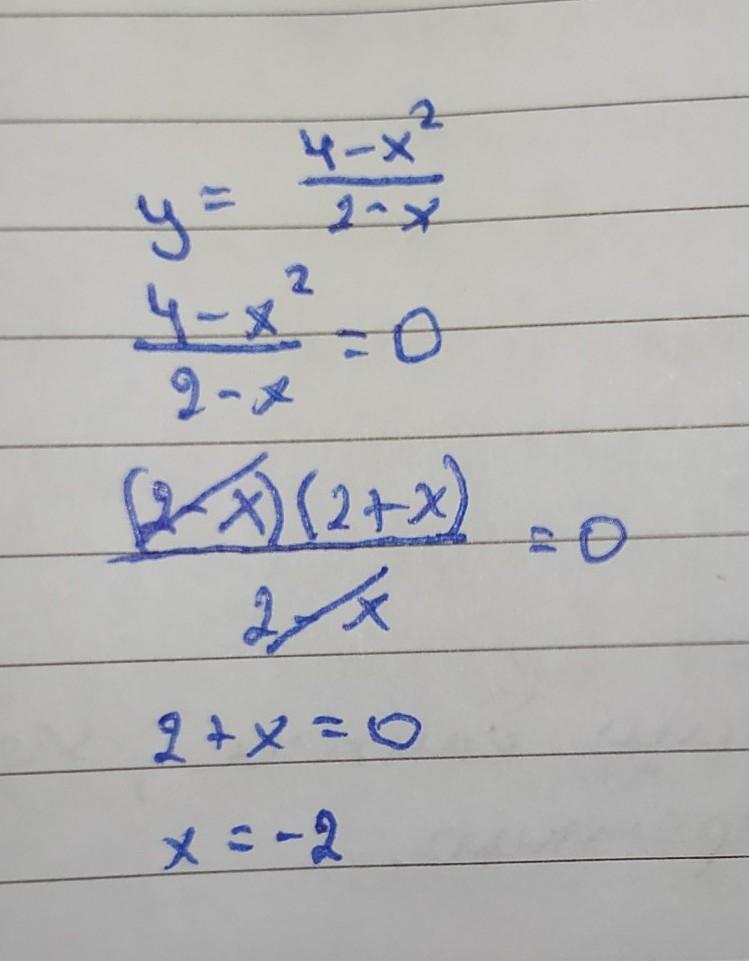 y = (4-x²)/(2-x)
(4-x²)/(2-x) = 0
((2-x)(2+x))/(2-x) = 0
2+x=0
x=-2